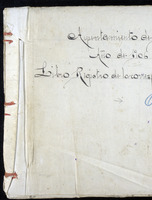 Ayuntamiento de
Año de 1906
Libro Registro de la corres